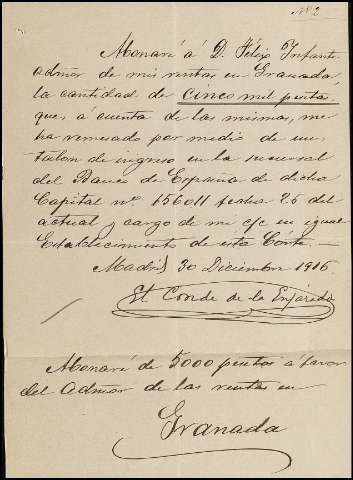 Nº 2
Monaré á D. Félix Infante
admor de mis rentas en Granada,
la cantidad de cinco mil pesetas
que, á cuenta de las mismas, me
ha remesado por medio de un
talon de ingreso en la sucursal
del Banco de España de dicha
Capital nº 156011 fecha 26 del
actual y cargo de mi c/c en igual
Establecimiento de esta Corte.
Madrid 30 Diciembre 1916
El Conde de la Enjarada
Monaré de 5000 pesetas á favor
del admor de las rentas en
Granada